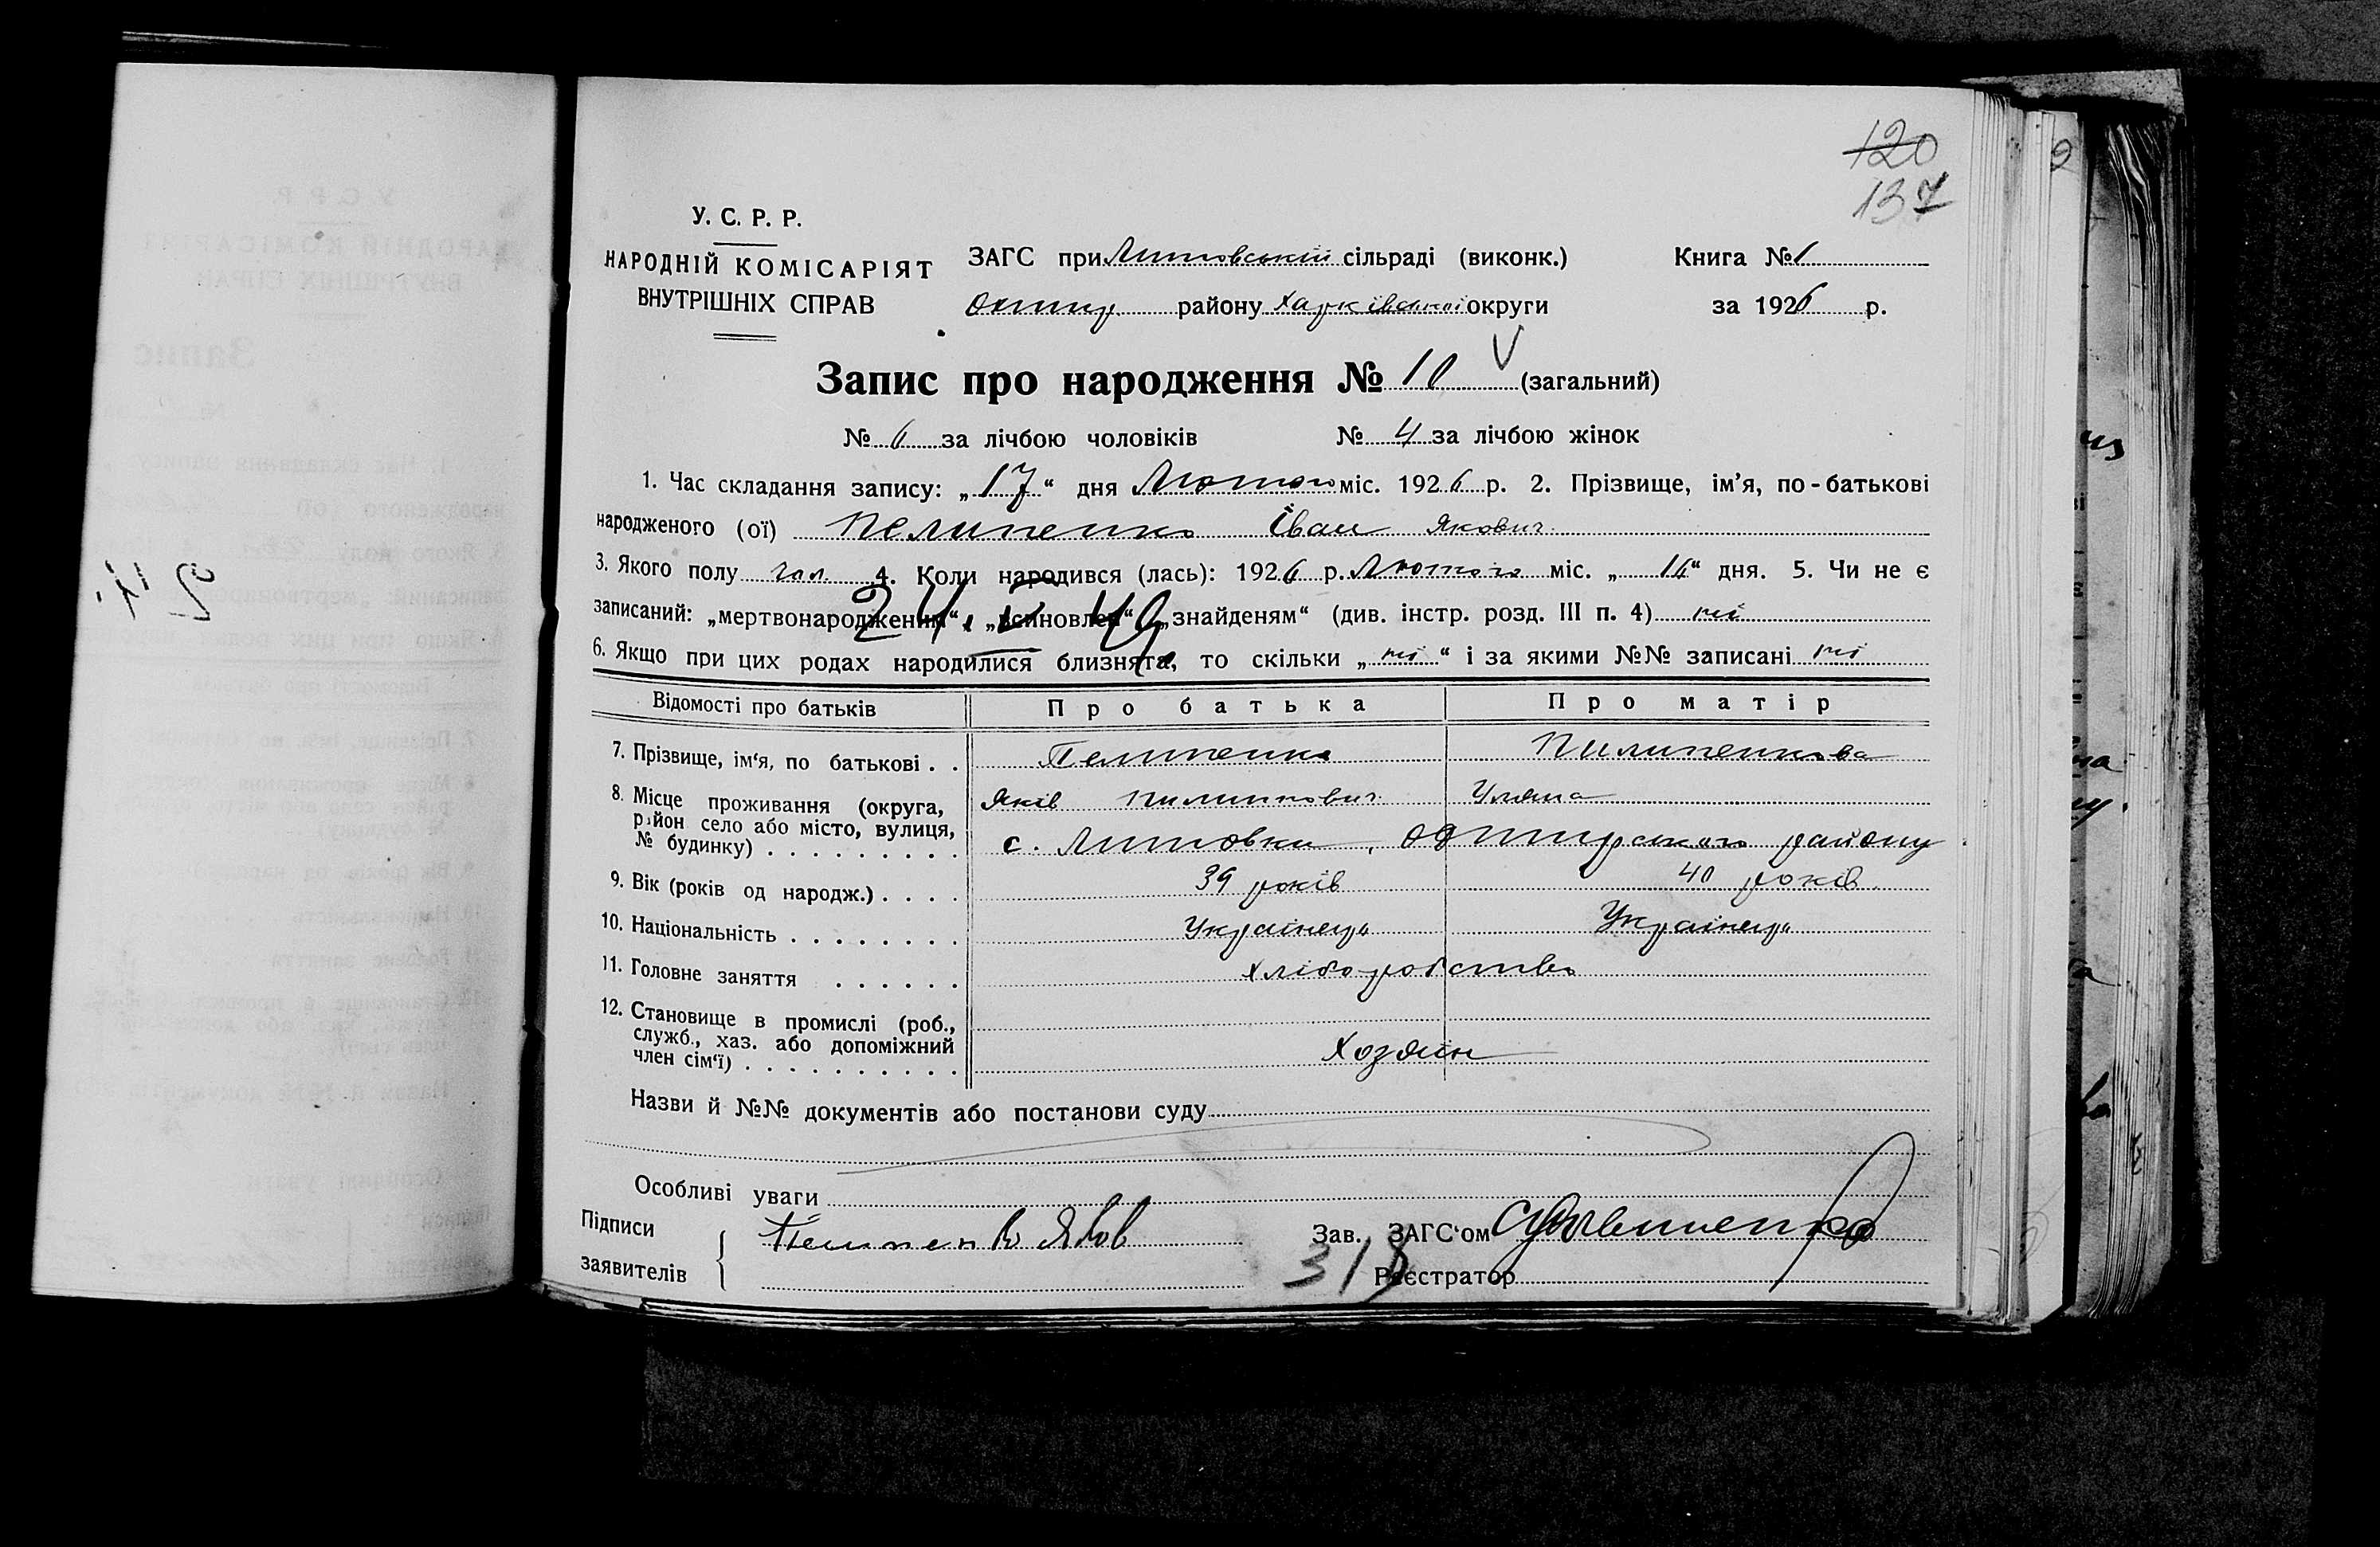 120
137
У. С. Р. Р.
НАРОДНІЙ КОМІСАРІЯТ
ВНУТРІШНІХ СПРАВ
ЗАГС при Литовській сільраді (виконк.) Книга № 1
Охтир району Харківської округи за 1926 р.
Запис про народження № 10 (загальний)
№ 6 за лічбою чоловіків № 4 за лічбою жінок
1. Час складання запису: „17“ дня Лютого міс. 1926 р. 2. Прізвище, ім’я, по-батькові
народженого (ої) Пелипенко Іван Якович
3. Якого полу чол. 4. Коли народився (лась): 1926 р. Лютого міс. „16“ дня. 5. Чи не є
записаний: „мертвонароджений“, „всиновлен“ „знайденям“ (див. інстр. розд. III п. 4) ні
6. Якщо при цих родах народилися близнята, то скільки „ні“ і за якими №№ записані ні
Відомості про батьків Про батька Про матір
7. Прізвище, ім‘я, по батькові . . Пелипенко Пилипенкова
8. Місце проживання (округа, Яків Пилипович Уляна
район село або місто, вулиця,
№ будинку) . . . . . . . . . с. Литовка, Охтирського району
9. Вік (років од народж.) . . . . 39 років 40 років
10. Національність . . . . . . . . Українець Українець
11. Головне заняття . . . . . . Хліборобство
12. Становище в промислі (роб.,
служб., хаз. або допоміжний
член сім‘ї) . . . . . . . . . . Хозяин
Назви й №№ документів або постанови суду
Особливі уваги
Підписи
заявителів Пелипенко Яков
Зав. ЗАГС‘ом
318
Реєстратор